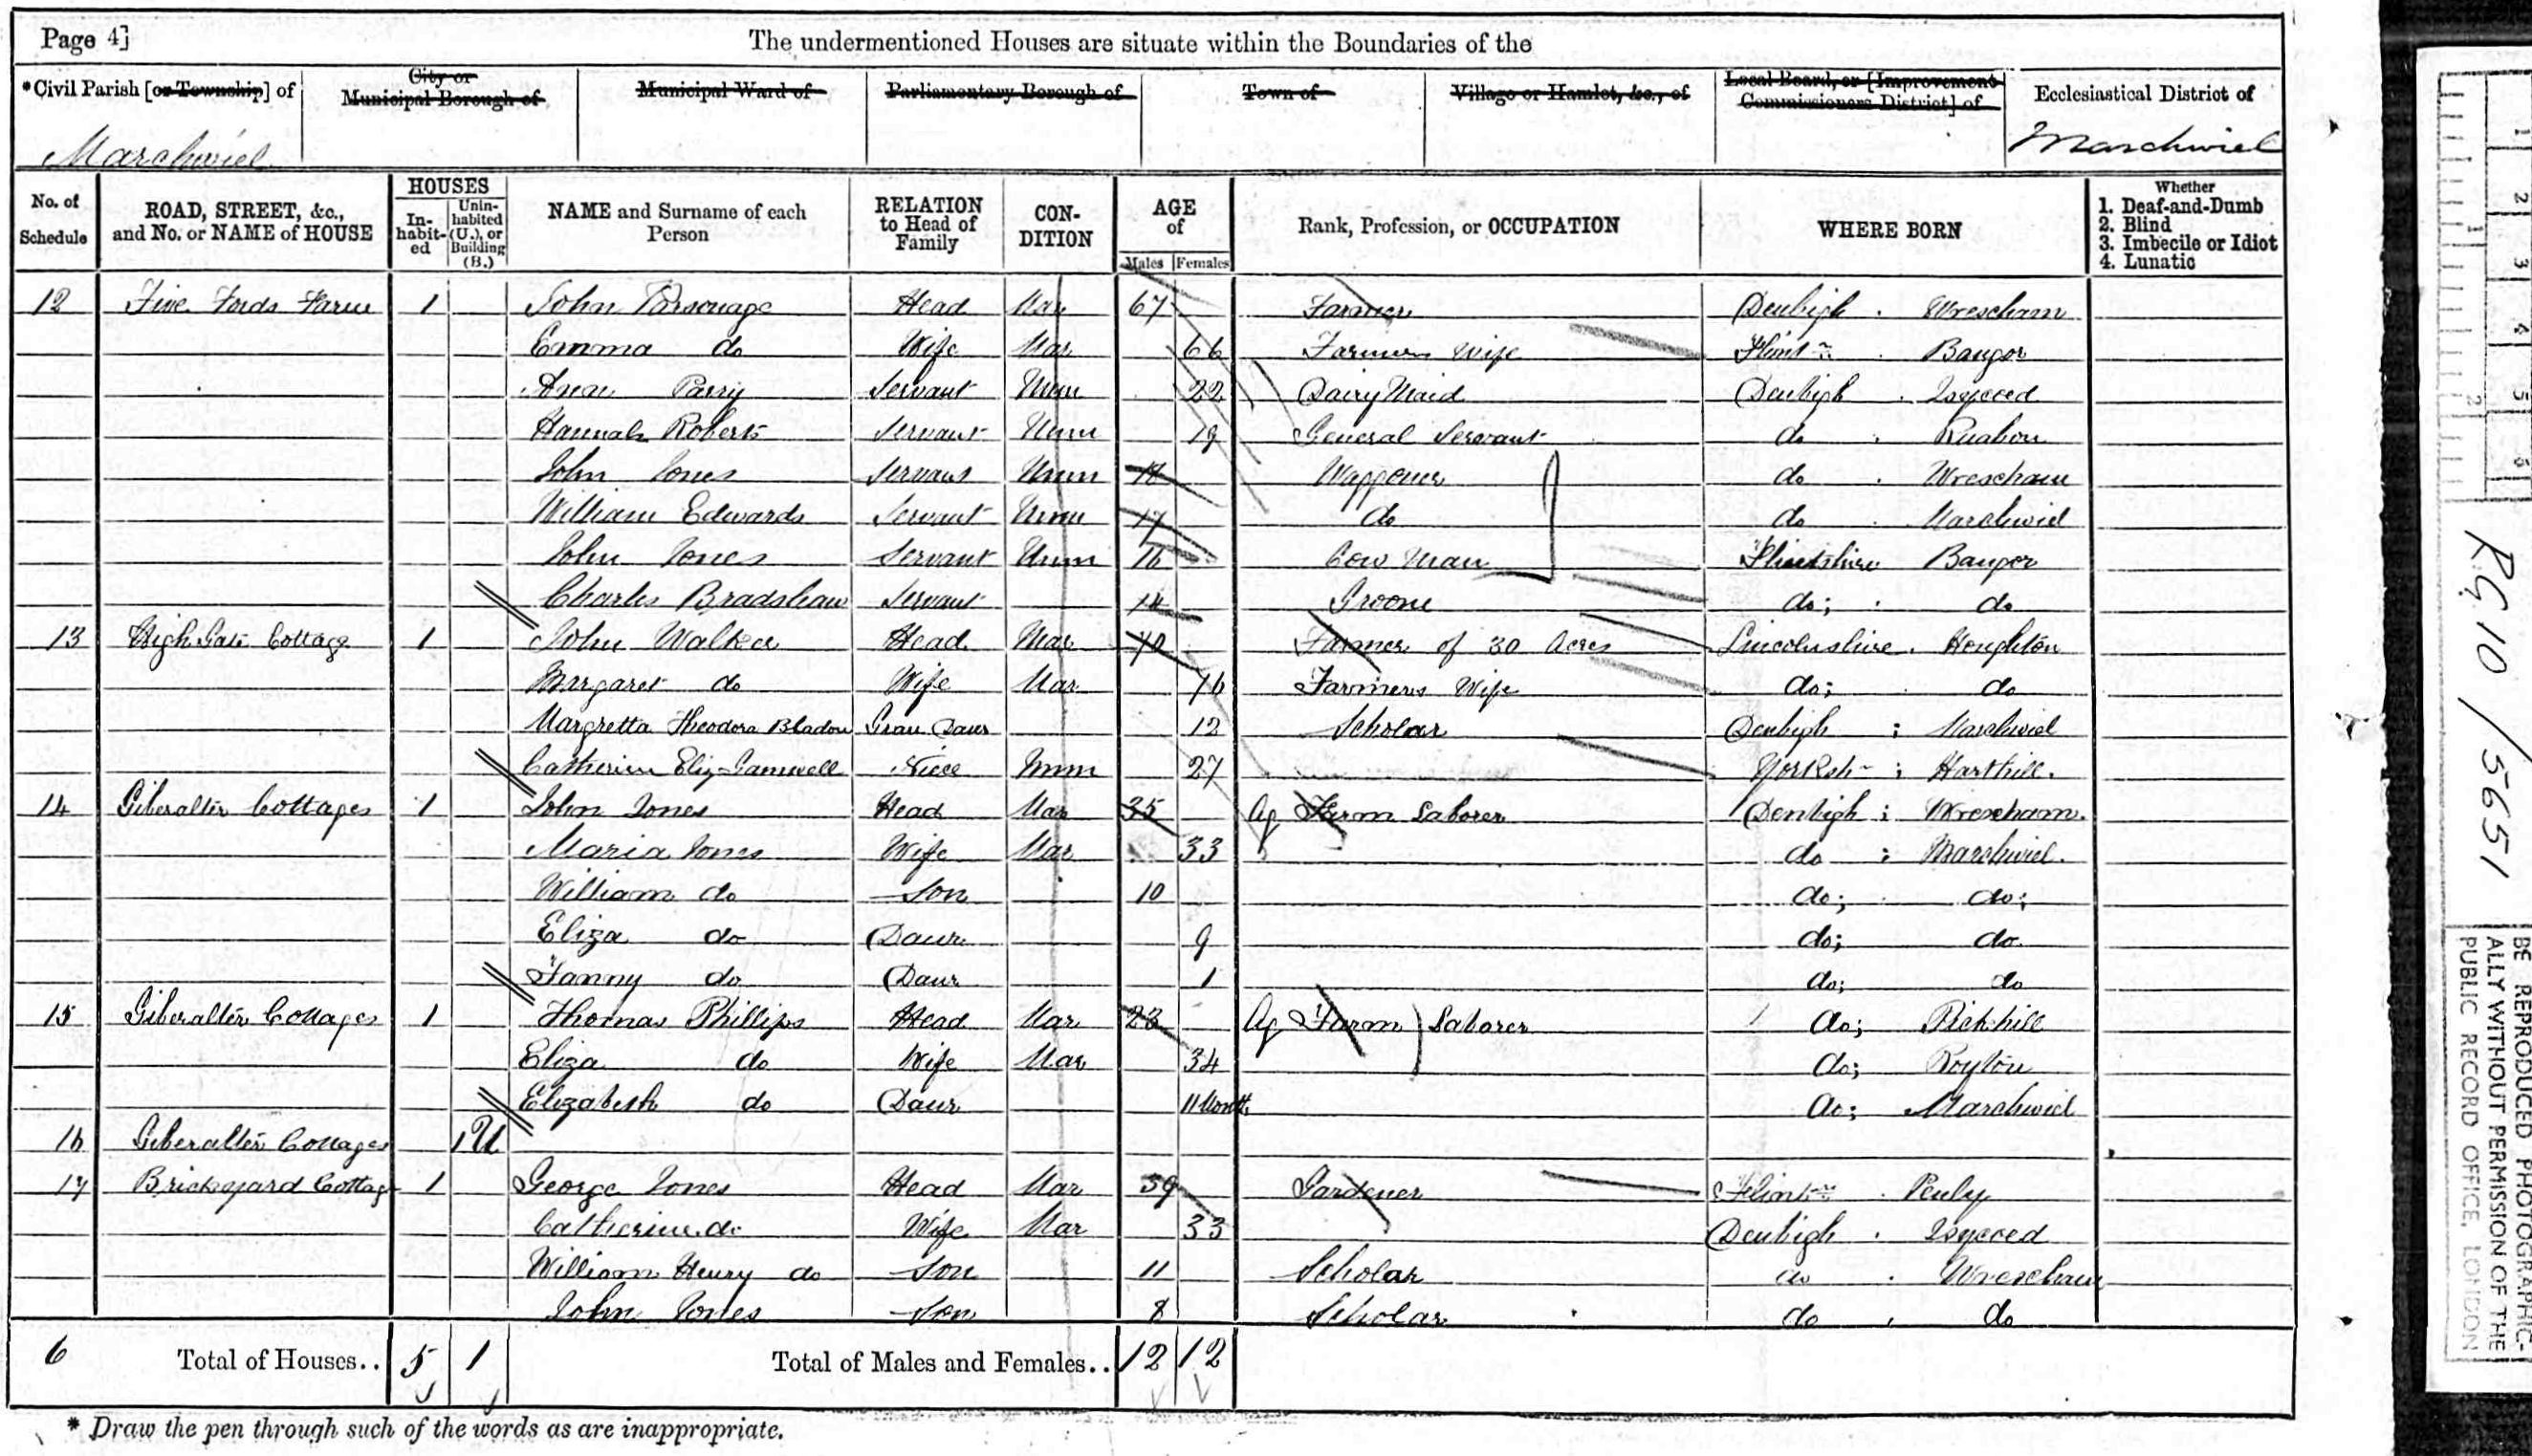 Page 4]
The undermentioned Houses are situate within the Boundaries of the
*Civil Parish [or Township] of City or Municipal Borough of Municipal Ward of Parliamentary Borough of Town of Village or Hamlet, &c., of Local Board, or [Improvement Commissioners District] of Ecclesiastical District of
Marchwiel Marchwiel
No. of Schedule ROAD, STREET, &c., and No. or NAME of HOUSE HOUSES Inhabited Uninhabited (U.), or Building (B.) NAME and Surname of each Person RELATION to Head of Family CONDITION AGE of Males Females Rank, Profession, or OCCUPATION WHERE BORN Whether 1. Deaf-and-Dumb 2. Blind 3. Imbecile or Idiot 4. Lunatic
12 Five Fords Farm 1 John Parsonage Head Mar 67 Farmer Denbigh . Wrexham
Emma do Wife Mar 66 Farmers Wife Flint . Bangor
Ann Parry Servant Unm 22 Dairy Maid Denbigh . Isycoed
Hannah Roberts Servant Unm 19 General Servant do . Ruabon
John Jones Servant Unm 18 Waggoner do . Wrexham
William Edwards Servant Unm 17 do do . Marchwiel
John Jones Servant Unm 16 Cow Man Flintshire Bangor
Charles Bradshaw Servant 14 Groom do; . do
13 High Gate Cottage 1 John Walker Head Mar 70 Farmer of 30 Acres Lincolnshire . Houghton
Margaret do Wife Mar 76 Farmers Wife do; do
Margretta Theodora Bladon Gran Daur 12 Scholar Denbigh ; Marchwiel
Catherine Eliz Gamwell Niece Unm 27 Yorksh- ; Harthill.
14 Giberalter Cottages 1 John Jones Head Mar 35 Ag Farm Laborer Denbigh ; Wrexham.
Maria Jones Wife Mar 33 do ; Marchwiel.
William do Son 10 do; do;
Eliza do Daur 9 do; do
Fanny do Daur 1 do; do
15 Giberalter Cottages 1 Thomas Phillips Head Mar 23 Ag Farm Laborer do; Pickhill
Eliza do Wife Mar 34 do; Royton
Elizabeth do Daur 11 Month do; Marchwiel
16 Giberalter Cottages 1 U
17 Brickyard Cottage 1 George Jones Head Mar 39 Gardener Flint . Penly
Catherine do Wife Mar 33 Denbigh . Isycoed
William Henry do Son 11 Scholar do . Wrexham
John Jones Son 8 Scholar do . do
6 Total of Houses.. 5 1 Total of Males and Females.. 12 12
* Draw the pen through such of the words as are inappropriate.
R.G. 10 / 5651
BE REPRODUCED PHOTOGRAPHIC-
ALLY WITHOUT PERMISSION OF THE
PUBLIC RECORD OFFICE, LONDON